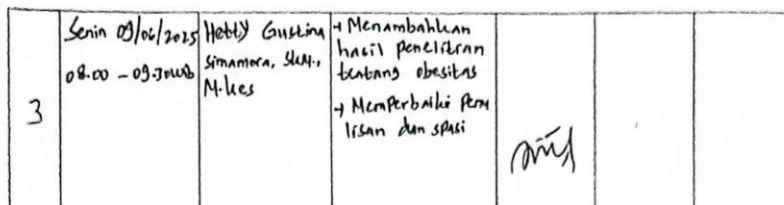 3
Senin 09/06/2025
08.00 - 09.30 WIB
Hetty Gustina
Simamora, SKM.,
M.kes
→ Menambahkan
hasil penelitian
tentang obesitas
→ Memperbaiki penu
lisan dan spasi